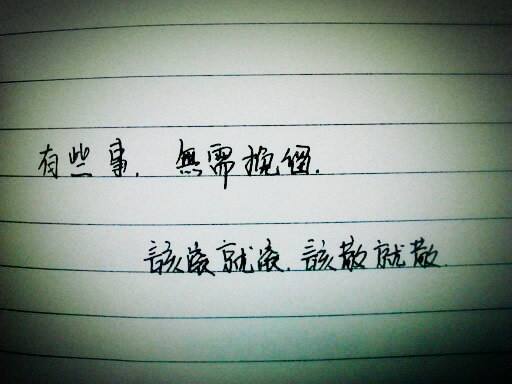 有些事. 無需挽留.
該滚就滚. 該散就散.